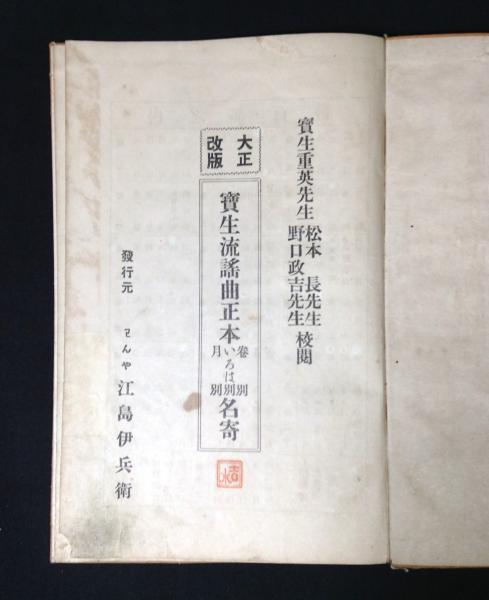 寶生重英先生
松本 長先生
野口政吉先生
校閲
大正
改版
寶生流謠曲正本
卷別
いろは別
月別
名寄
發行元 わんや 江島伊兵衛